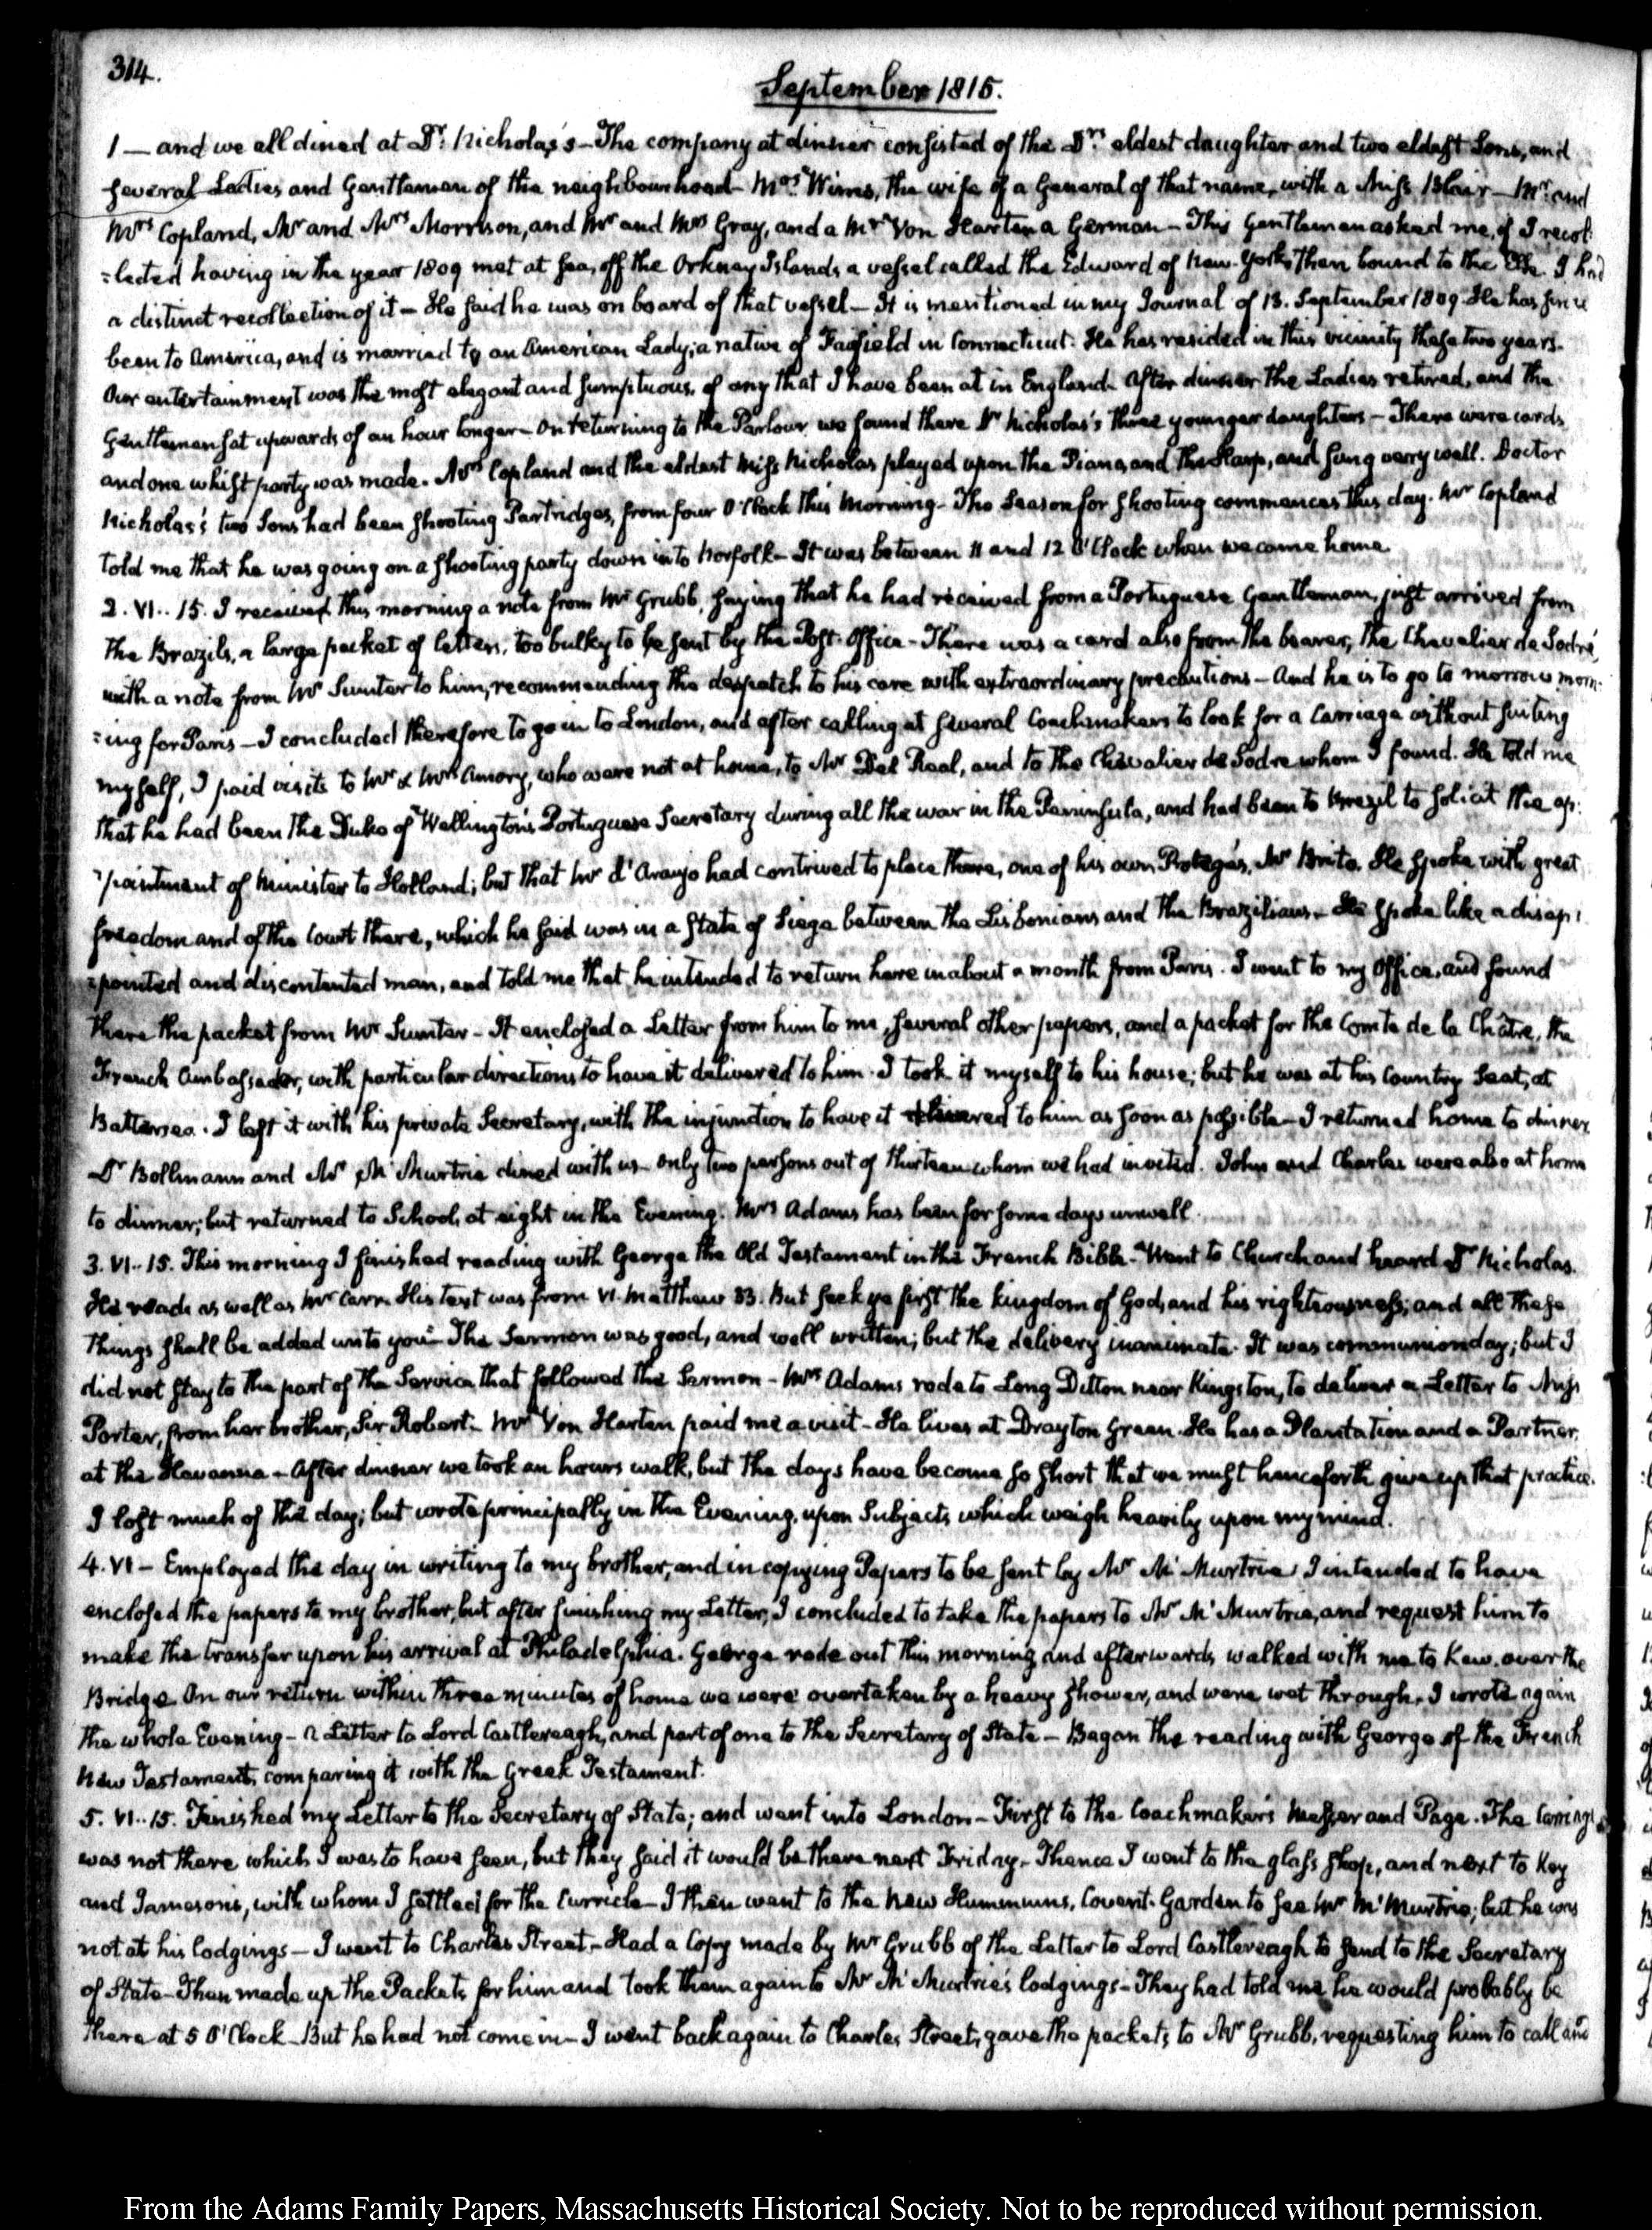 314.
September 1815.
1 — and we all dined at Dr. Nicholas's - The company at dinner consisted of the Drs. eldest daughter and two eldest Sons, and
several Ladies and Gentlemen of the neighbourhood - Mrs. Wims, the wife of a General of that name, with a Miss Blair — Mr. and
Mrs Copland, Mr and Mrs Morrison, and Mr and Mrs Gray, and a Mr Von Harten a German - This Gentleman asked me, if I recol-
=lected having in the year 1809 met at sea, off the Orkney Islands a vessel called the Edward of New-York, then bound to the Elbe. I had
a distinct recollection of it - He said he was on board of that vessel - It is mentioned in my Journal of 13. September 1809. He has since
been to America, and is married to an American Lady; a native of Fairfield in Connecticut. He has resided in this vicinity these two years.
Our entertainment was the most elegant and sumptuous, of any that I have been at in England. After dinner the Ladies retired, and the
Gentlemen sat upwards of an hour longer - On returning to the Parlour we found there Dr Nicholas's three younger daughters - There were cards,
and one whist party was made. Mrs Copland and the eldest Miss Nicholas played upon the Piano, and the Harp, and sung very well. Doctor
Nicholas's two Sons had been shooting Partridges, from four O'Clock this Morning - The Season for shooting commences this day. Mr Copland
told me that he was going on a shooting party down into Norfolk - It was between 11 and 12 O'Clock when we came home.
2. VI.. 15. I received this morning a note from Mr Grubb, saying that he had received from a Portuguese Gentleman, just arrived from
the Brazils, a large packet of letters, too bulky to be sent by the Post-Office - There was a card also from the bearer, the Chevalier de Sodré,
with a note from Mr Sumter to him, recommending the despatch to his care with extraordinary precautions - And he is to go to morrow morn-
=ing for Paris - I concluded therefore to go in to London, and after calling at several Coachmakers to look for a Carriage without suiting
myself, I paid visits to Mr & Mrs Amory, who were not at home, to Mr Del Real, and to the Chevalier de Sodre whom I found. He told me
that he had been the Duke of Wellington's Portuguese Secretary during all the war in the Peninsula, and had been to Brazil to solicit the ap-
=pointment of Minister to Holland; but that Mr d'Araujo had contrived to place there, one of his own Protegés, Mr Brito. He spoke with great
freedom and of the Court there, which he said was in a State of Siege between the Lisbonians and the Brazilians - He spoke like a disap-
=pointed and discontented man, and told me that he intended to return here in about a month from Paris. I went to my Office, and found
there the packet from Mr Sumter - It enclosed a Letter from him to me, several other papers, and a packet for the Comte de la Châtre, the
French Ambassador, with particular directions to have it delivered to him. I took it myself to his house; but he was at his Country Seat, at
Battersea. I left it with his private Secretary, with the injunction to have it delivered to him as soon as possible - I returned home to dinner
Dr Bollmann and Mr Mc Murtrie dined with us - only two persons out of thirteen whom we had invited. John and Charles were also at home
to dinner; but returned to School at eight in the Evening. Mrs Adams has been for some days unwell.
3. VI.. 15. This morning I finished reading with George the Old Testament in the French Bible. Went to Church and heard Dr Nicholas.
He reads as well as Mr Carr. His text was from VI. Matthew 33. But seek ye first the kingdom of God, and his righteousness; and all these
things shall be added unto you - The Sermon was good, and well written; but the delivery inanimate. It was communion day; but I
did not stay to the part of the Service that followed the Sermon - Mrs Adams rode to Long Ditton near Kingston, to deliver a Letter to Miss
Porter, from her brother, Sir Robert. Mr Von Harten paid me a visit - He lives at Drayton Green. He has a Plantation and a Partner,
at the Havanna - After dinner we took an hours walk, but the days have become so short that we must henceforth give up that practice.
I lost much of the day; but wrote principally in the Evening, upon Subjects which weigh heavily upon my mind.
4. VI - Employed the day in writing to my brother, and in copying Papers to be sent by Mr Mc Murtrie. I intended to have
enclosed the papers to my brother, but after finishing my Letter, I concluded to take the papers to Mr Mc Murtrie, and request him to
make the transfer upon his arrival at Philadelphia. George rode out this morning and afterwards walked with me to Kew, over the
Bridge. On our return within three minutes of home we were overtaken by a heavy shower, and were wet through. I wrote again
the whole Evening - a Letter to Lord Castlereagh, and part of one to the Secretary of State - Began the reading with George of the French
New Testament, comparing it with the Greek Testament.
5. VI.. 15. Finished my Letter to the Secretary of State; and went into London - First to the Coachmaker's Messer and Page. The Carriage
was not there which I was to have seen, but they said it would be there next Friday - Thence I went to the glass shop, and next to Key
and Jameson's, with whom I settled for the Curricle - I then went to the New Hummums, Covent-Garden to see Mr McMurtrie; but he was
not at his lodgings - I went to Charles Street - Had a Copy made by Mr Grubb of the Letter to Lord Castlereagh to send to the Secretary
of State - Then made up the Packets for him and took them again to Mr McMurtrie's lodgings - They had told me he would probably be
there at 5 O'Clock - But he had not come in - I went back again to Charles Street, gave the packets to Mr Grubb, requesting him to call and
From the Adams Family Papers, Massachusetts Historical Society. Not to be reproduced without permission.